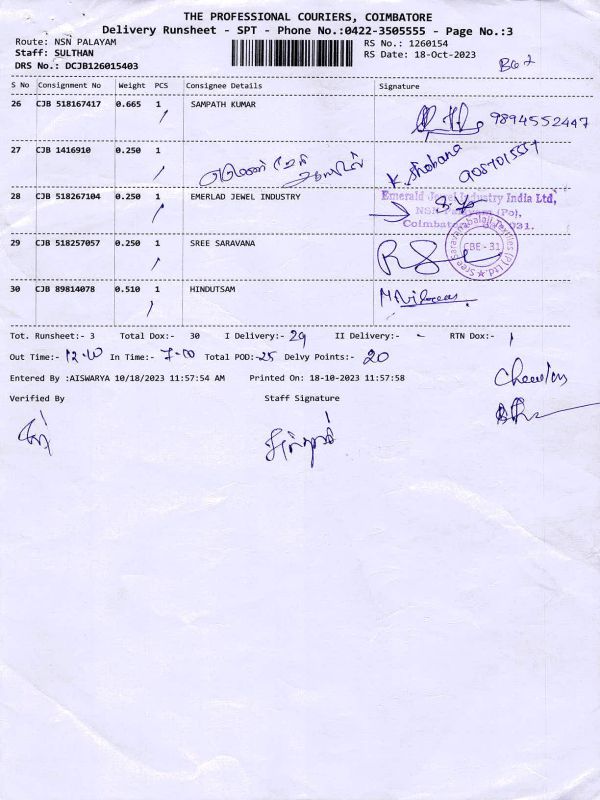 THE PROFESSIONAL COURIERS, COIMBATORE
Delivery Runsheet - SPT - Phone No.:0422-3505555 - Page No.:3
Route: NSN PALAYAM RS No.: 1260154
Staff: SULTHAN RS Date: 18-Oct-2023
DRS No.: DCJB126015403
S No Consignment No Weight PCS Consignee Details Signature
26 CJB 518167417 0.665 1 SAMPATH KUMAR 9894552447
27 CJB 1416910 0.250 1 K. Shobana 9087015557
28 CJB 518267104 0.250 1 EMERLAD JEWEL INDUSTRY Emerald Jewel Industry India Ltd,
29 CJB 518257057 0.250 1 SREE SARAVANA CBE - 31
30 CJB 89814078 0.510 1 HINDUTSAM
Tot. Runsheet:- 3 Total Dox:- 30 I Delivery:- 29 II Delivery:- - RTN Dox:- 1
Out Time:- 12-10 In Time:- 7-00 Total POD:- 25 Delvy Points:- 20
Entered By :AISWARYA 10/18/2023 11:57:54 AM Printed On: 18-10-2023 11:57:58
Verified By Staff Signature